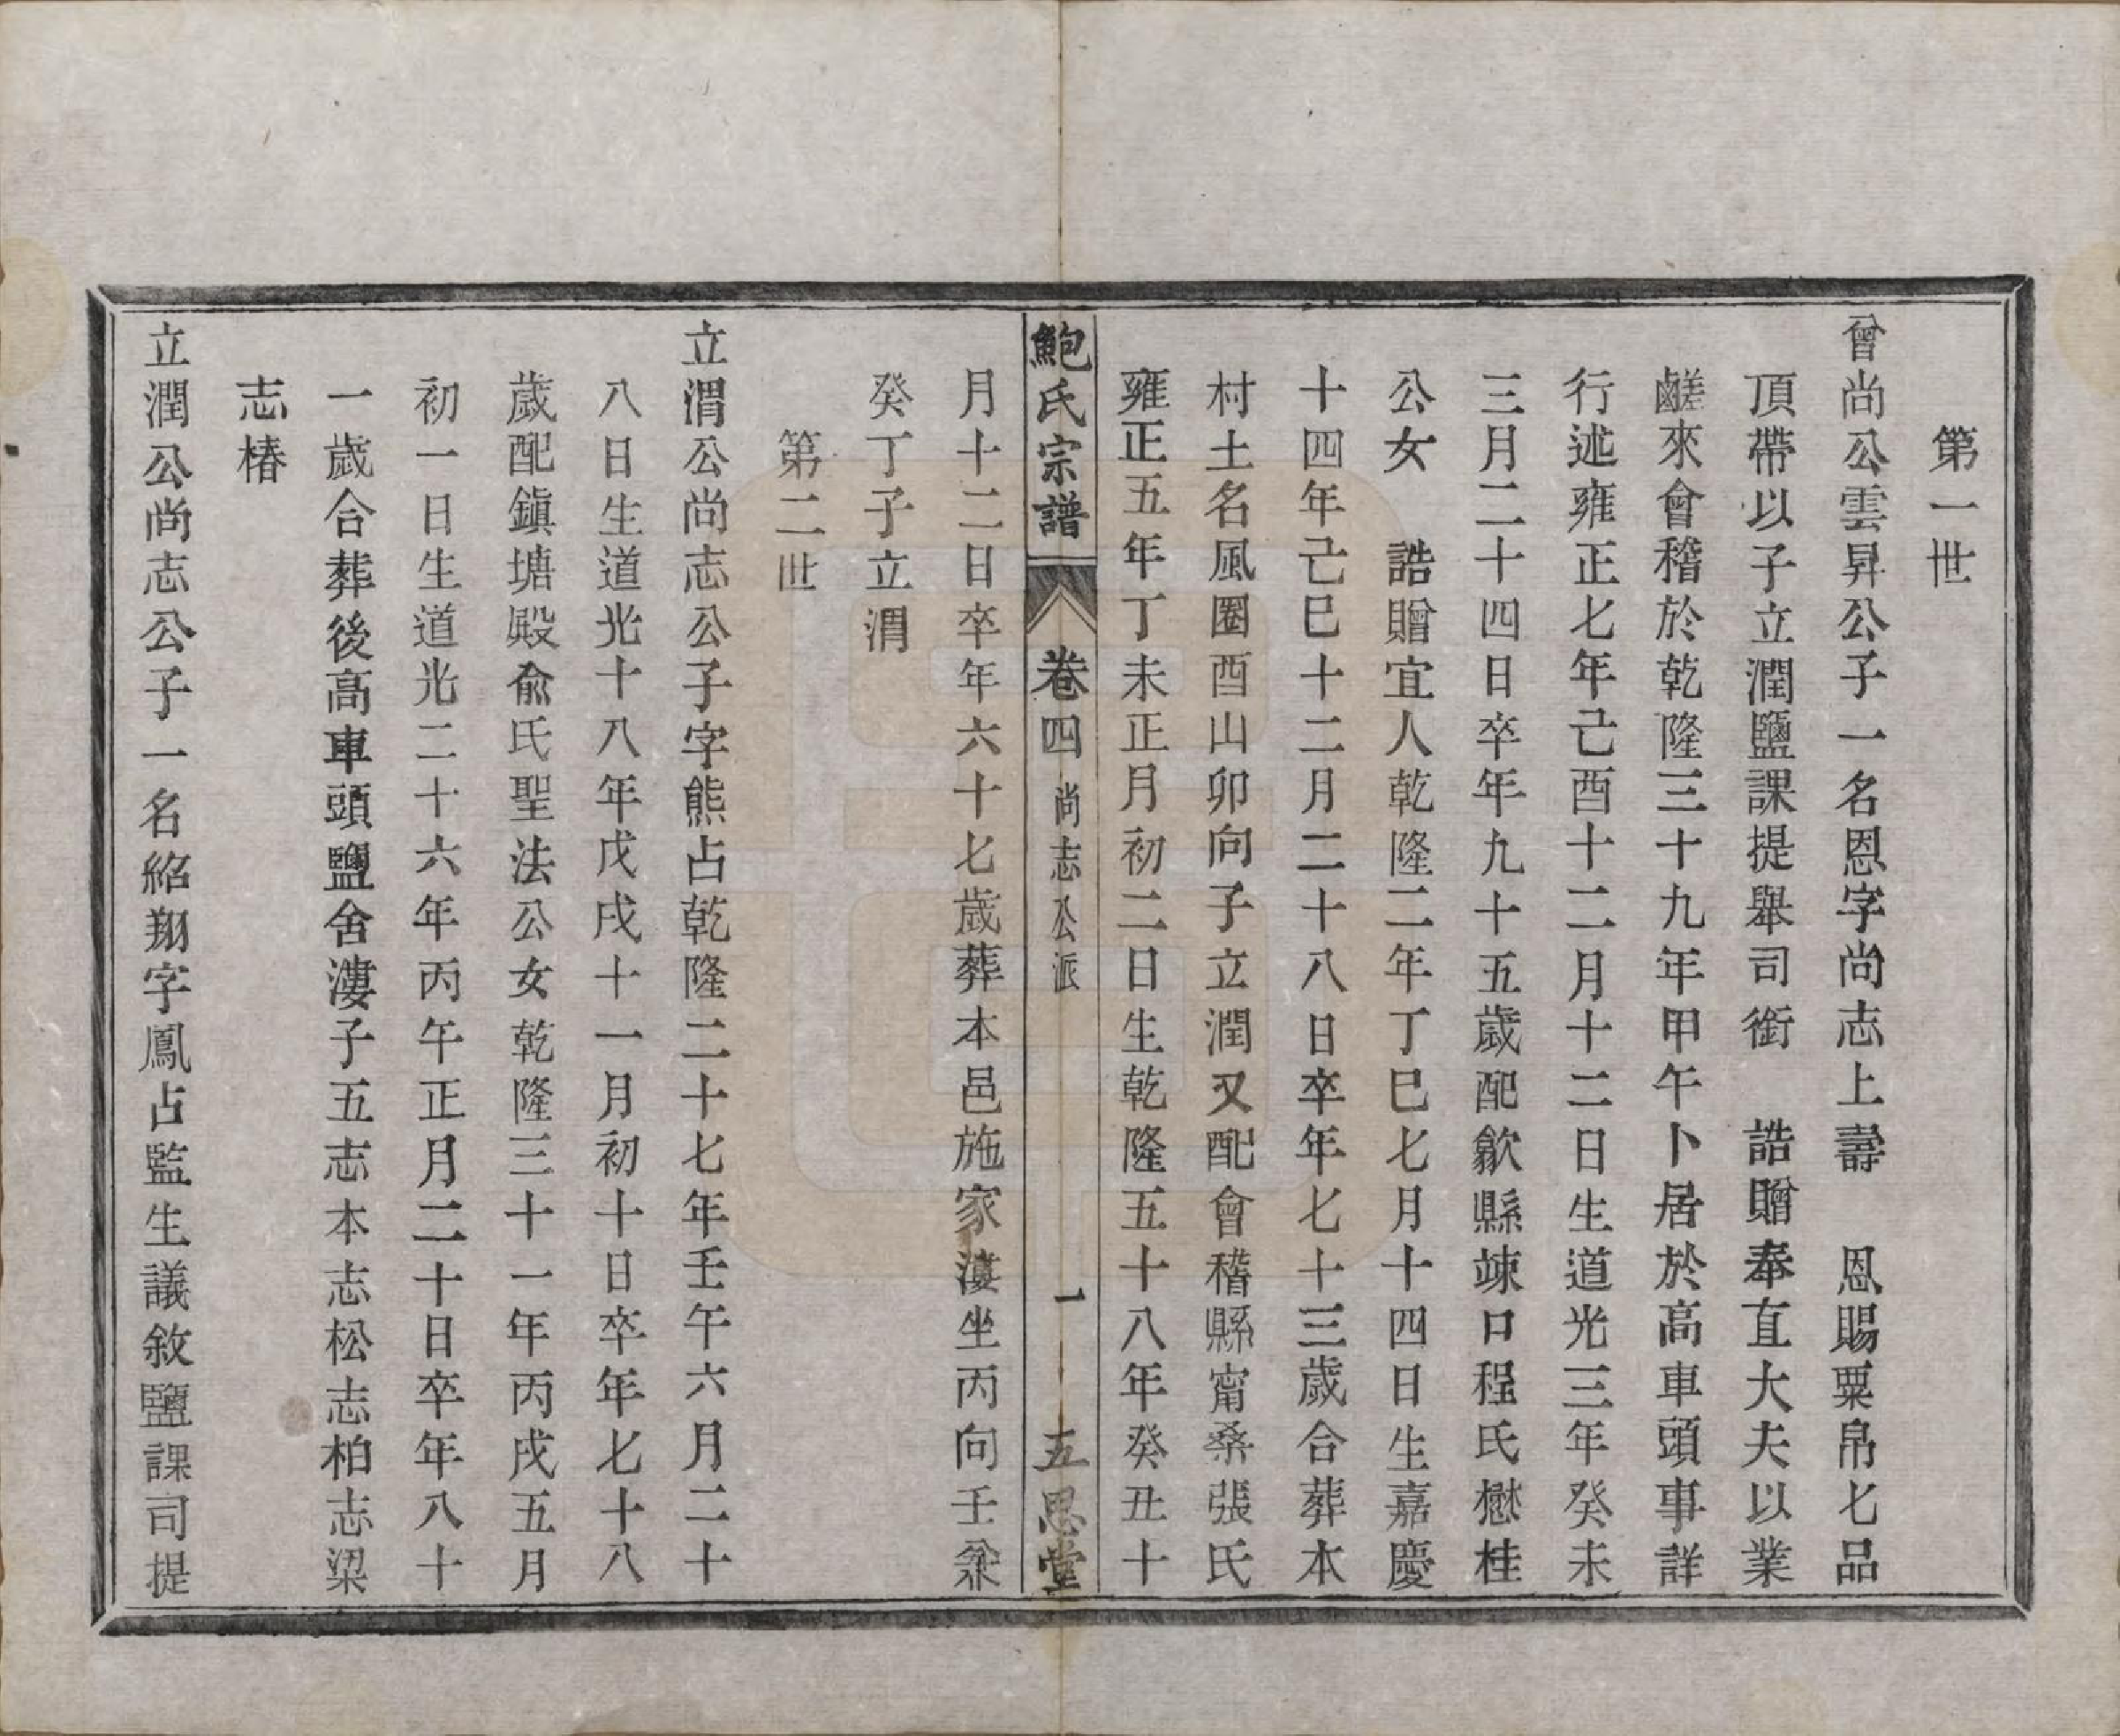 第一世
曾尚公雲昇公子一名恩字尚志上壽　恩賜粟帛七品
頂帶以子立潤鹽課提舉司銜　誥贈奉直大夫以業
鹺來會稽於乾隆三十九年甲午卜居於高車頭事詳
行述雍正七年己酉十二月十二日生道光三年癸未
三月二十四日卒年九十五歲配歙縣竦口程氏懋桂
公女　誥贈宜人乾隆二年丁巳七月十四日生嘉慶
十四年己巳十二月二十八日卒年七十三歲合葬本
村土名風圈酉山卯向子立潤又配會稽縣甯桑張氏
雍正五年丁未正月初二日生乾隆五十八年癸丑十
鮑氏宗譜　卷四　尚志公派　一　五思堂
月十二日卒年六十七歲葬本邑施家漊坐丙向壬兼
癸丁子立渭
第二世
立渭公尚志公子字熊占乾隆二十七年壬午六月二十
八日生道光十八年戊戌十一月初十日卒年七十八
歲配鎭塘殿俞氏聖法公女乾隆三十一年丙戌五月
初一日生道光二十六年丙午正月二十日卒年八十
一歲合葬後高車頭鹽舍漊子五志本志松志柏志梁
志椿
立潤公尚志公子一名紹翔字鳳占監生議敘鹽課司提